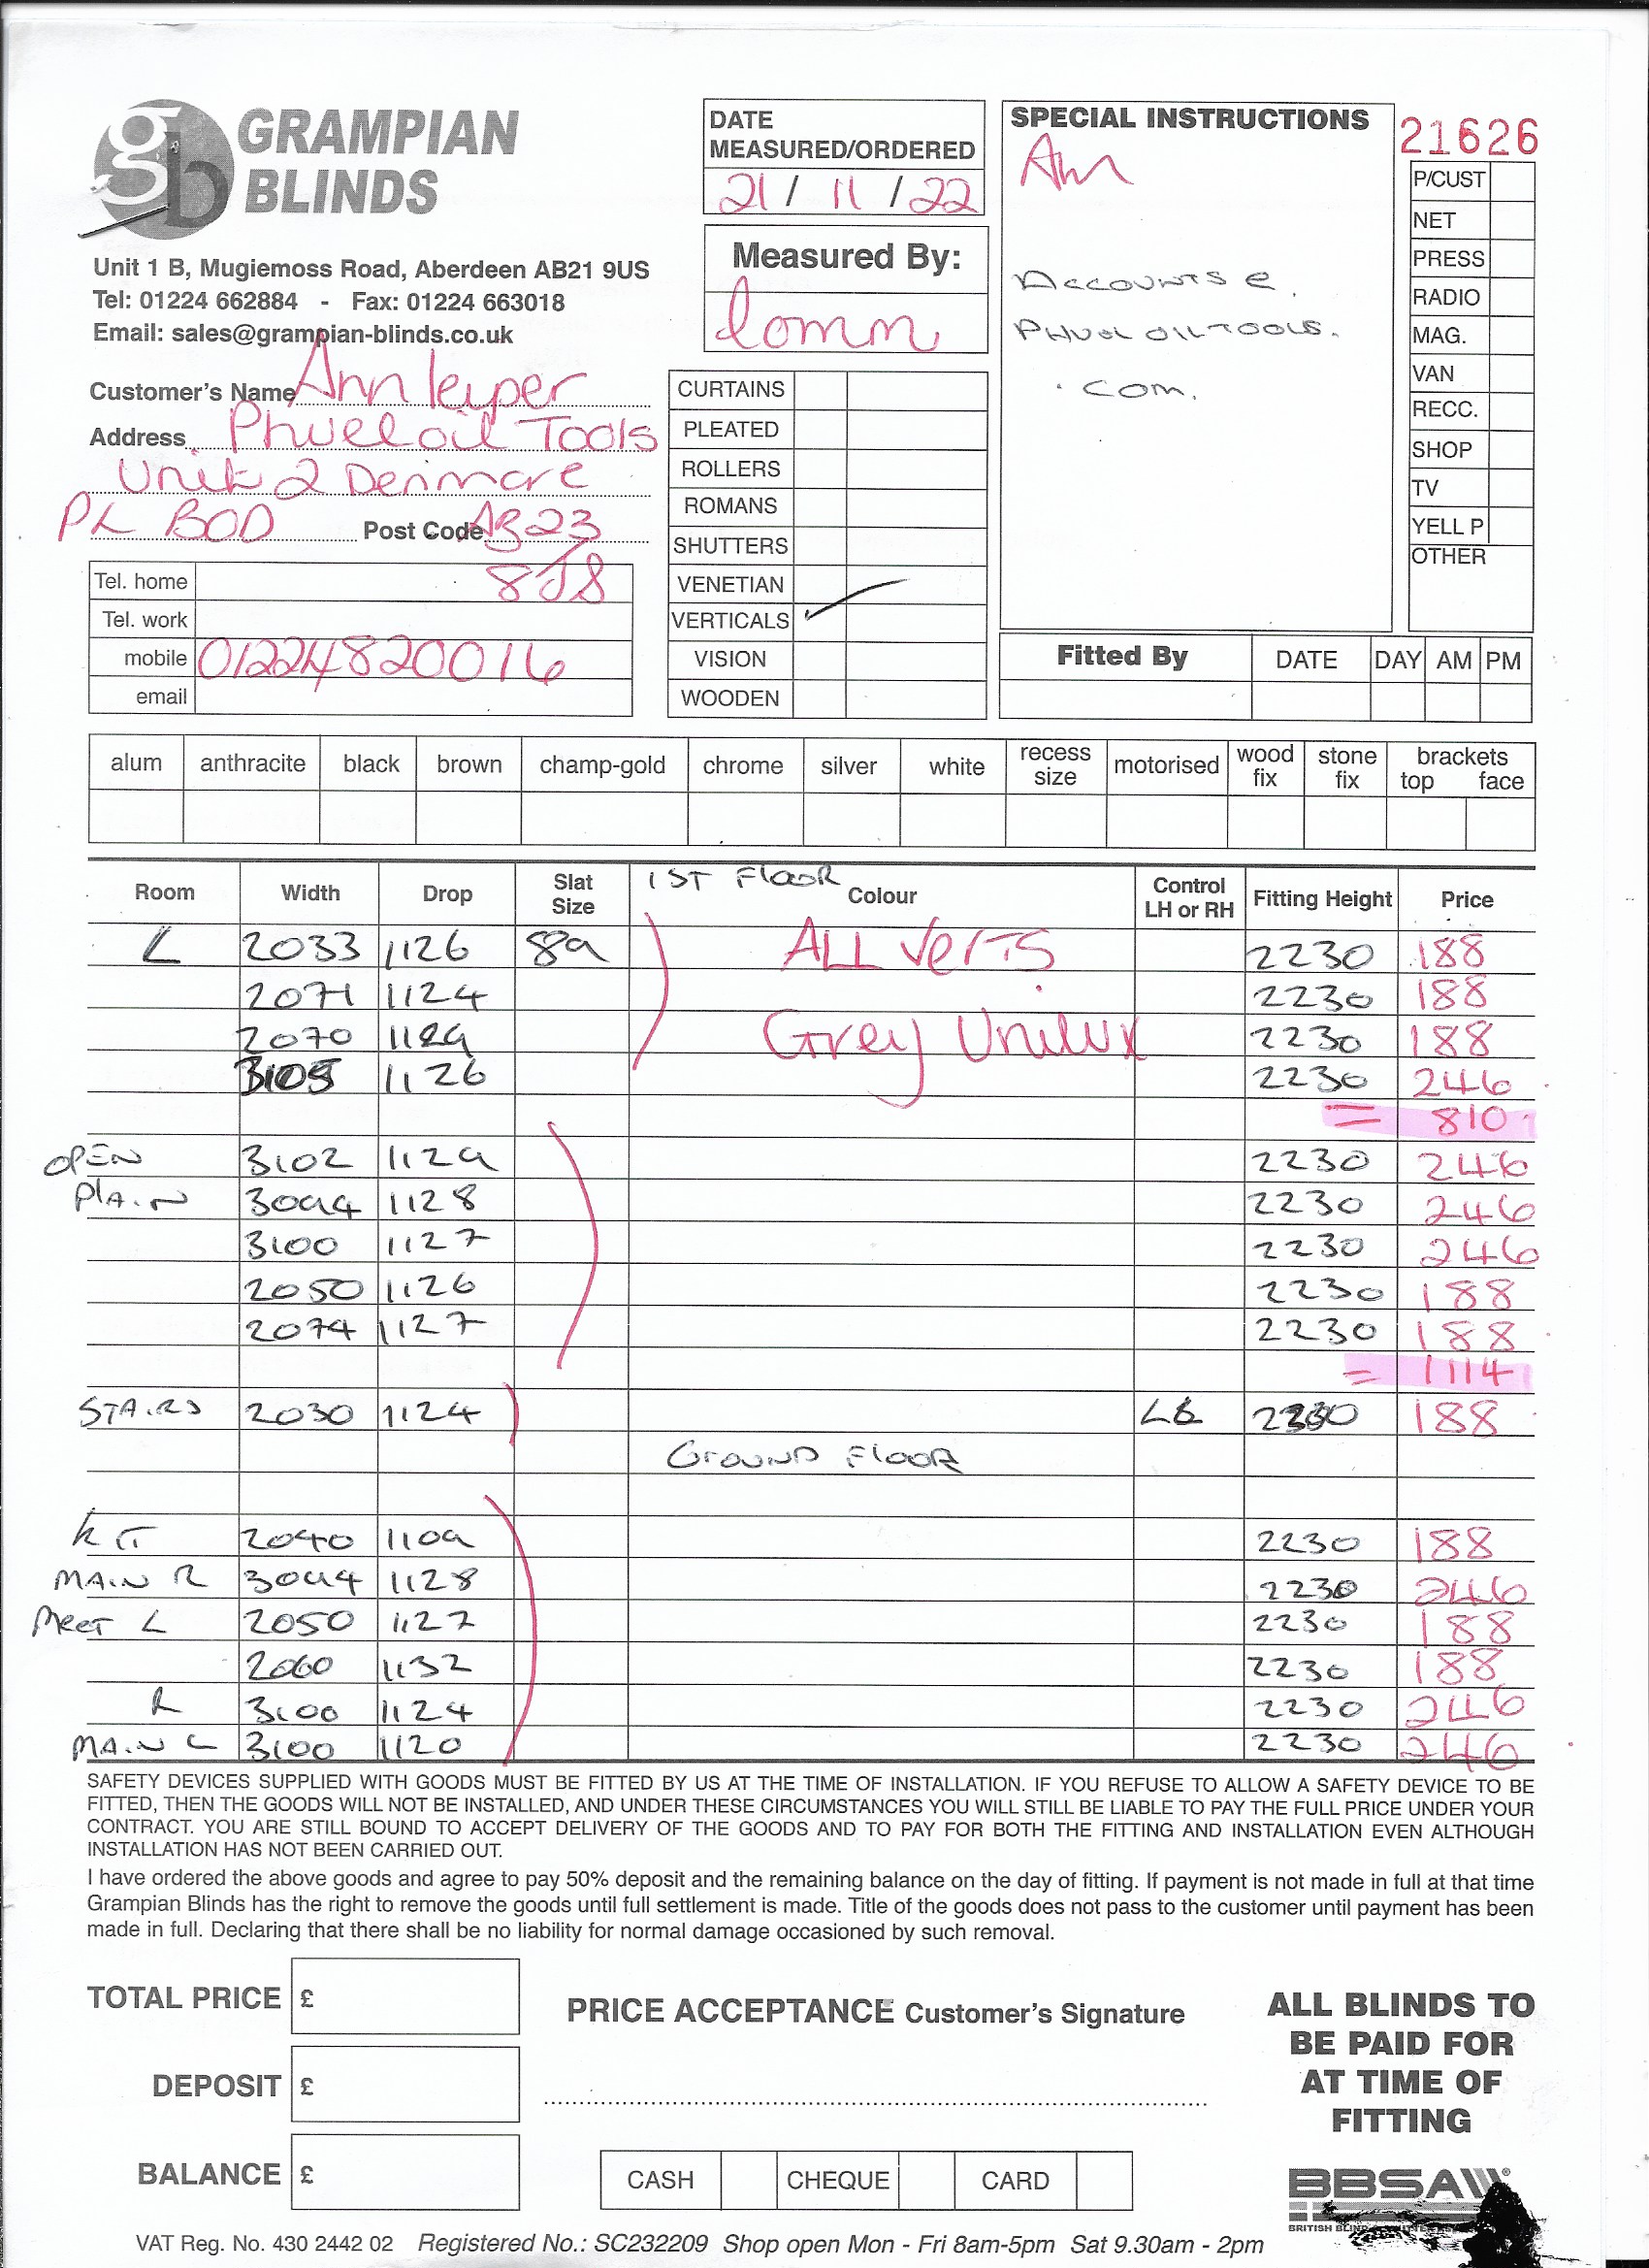 gb GRAMPIAN BLINDS
Unit 1 B, Mugiemoss Road, Aberdeen AB21 9US
Tel: 01224 662884 - Fax: 01224 663018
Email: sales@grampian-blinds.co.uk
DATE MEASURED/ORDERED
21 / 11 / 22
Measured By:
SPECIAL INSTRUCTIONS
Ann
Accounts @
PHUELOILTOOLS.
.com.
21626
P/CUST
NET
PRESS
RADIO
MAG.
VAN
RECC.
SHOP
TV
YELL P
OTHER
Customer's Name Ann Leiper
Address Phuel oil Tools
Unit 2 Denmore
PL BOD Post Code AB23
8JS
Tel. home
Tel. work
mobile 01224820016
email
CURTAINS
PLEATED
ROLLERS
ROMANS
SHUTTERS
VENETIAN
VERTICALS ✓
VISION
WOODEN
Fitted By DATE DAY AM PM
alum anthracite black brown champ-gold chrome silver white recess size motorised wood fix stone fix brackets top face
1ST FlooR
Room Width Drop Slat Size Colour Control LH or RH Fitting Height Price
L 2033 1126 89 ALL Verts 2230 188
2071 1124 2230 188
2070 1129 Grey Unilux 2230 188
3105 1126 2230 246
= 810
OPEN 3102 1129 2230 246
PlAiN 3094 1128 2230 246
3100 1127 2230 246
2050 1126 2230 188
2074 1127 2230 188
= 1114
STAiRS 2030 1124 2230 188
GrounD FlooR
KiT 2040 1109 2230 188
MAiN R 3094 1128 2230 246
Meet L 2050 1127 2230 188
2060 1132 2230 188
R 3100 1124 2230 246
MAiN L 3100 1120 2230 246
SAFETY DEVICES SUPPLIED WITH GOODS MUST BE FITTED BY US AT THE TIME OF INSTALLATION. IF YOU REFUSE TO ALLOW A SAFETY DEVICE TO BE
FITTED, THEN THE GOODS WILL NOT BE INSTALLED, AND UNDER THESE CIRCUMSTANCES YOU WILL STILL BE LIABLE TO PAY THE FULL PRICE UNDER YOUR
CONTRACT. YOU ARE STILL BOUND TO ACCEPT DELIVERY OF THE GOODS AND TO PAY FOR BOTH THE FITTING AND INSTALLATION EVEN ALTHOUGH
INSTALLATION HAS NOT BEEN CARRIED OUT.
I have ordered the above goods and agree to pay 50% deposit and the remaining balance on the day of fitting. If payment is not made in full at that time
Grampian Blinds has the right to remove the goods until full settlement is made. Title of the goods does not pass to the customer until payment has been
made in full. Declaring that there shall be no liability for normal damage occasioned by such removal.
TOTAL PRICE £
DEPOSIT £
BALANCE £
PRICE ACCEPTANCE Customer's Signature
CASH CHEQUE CARD
ALL BLINDS TO
BE PAID FOR
AT TIME OF
FITTING
BBSA
BRITISH
VAT Reg. No. 430 2442 02 Registered No.: SC232209 Shop open Mon - Fri 8am-5pm Sat 9.30am - 2pm